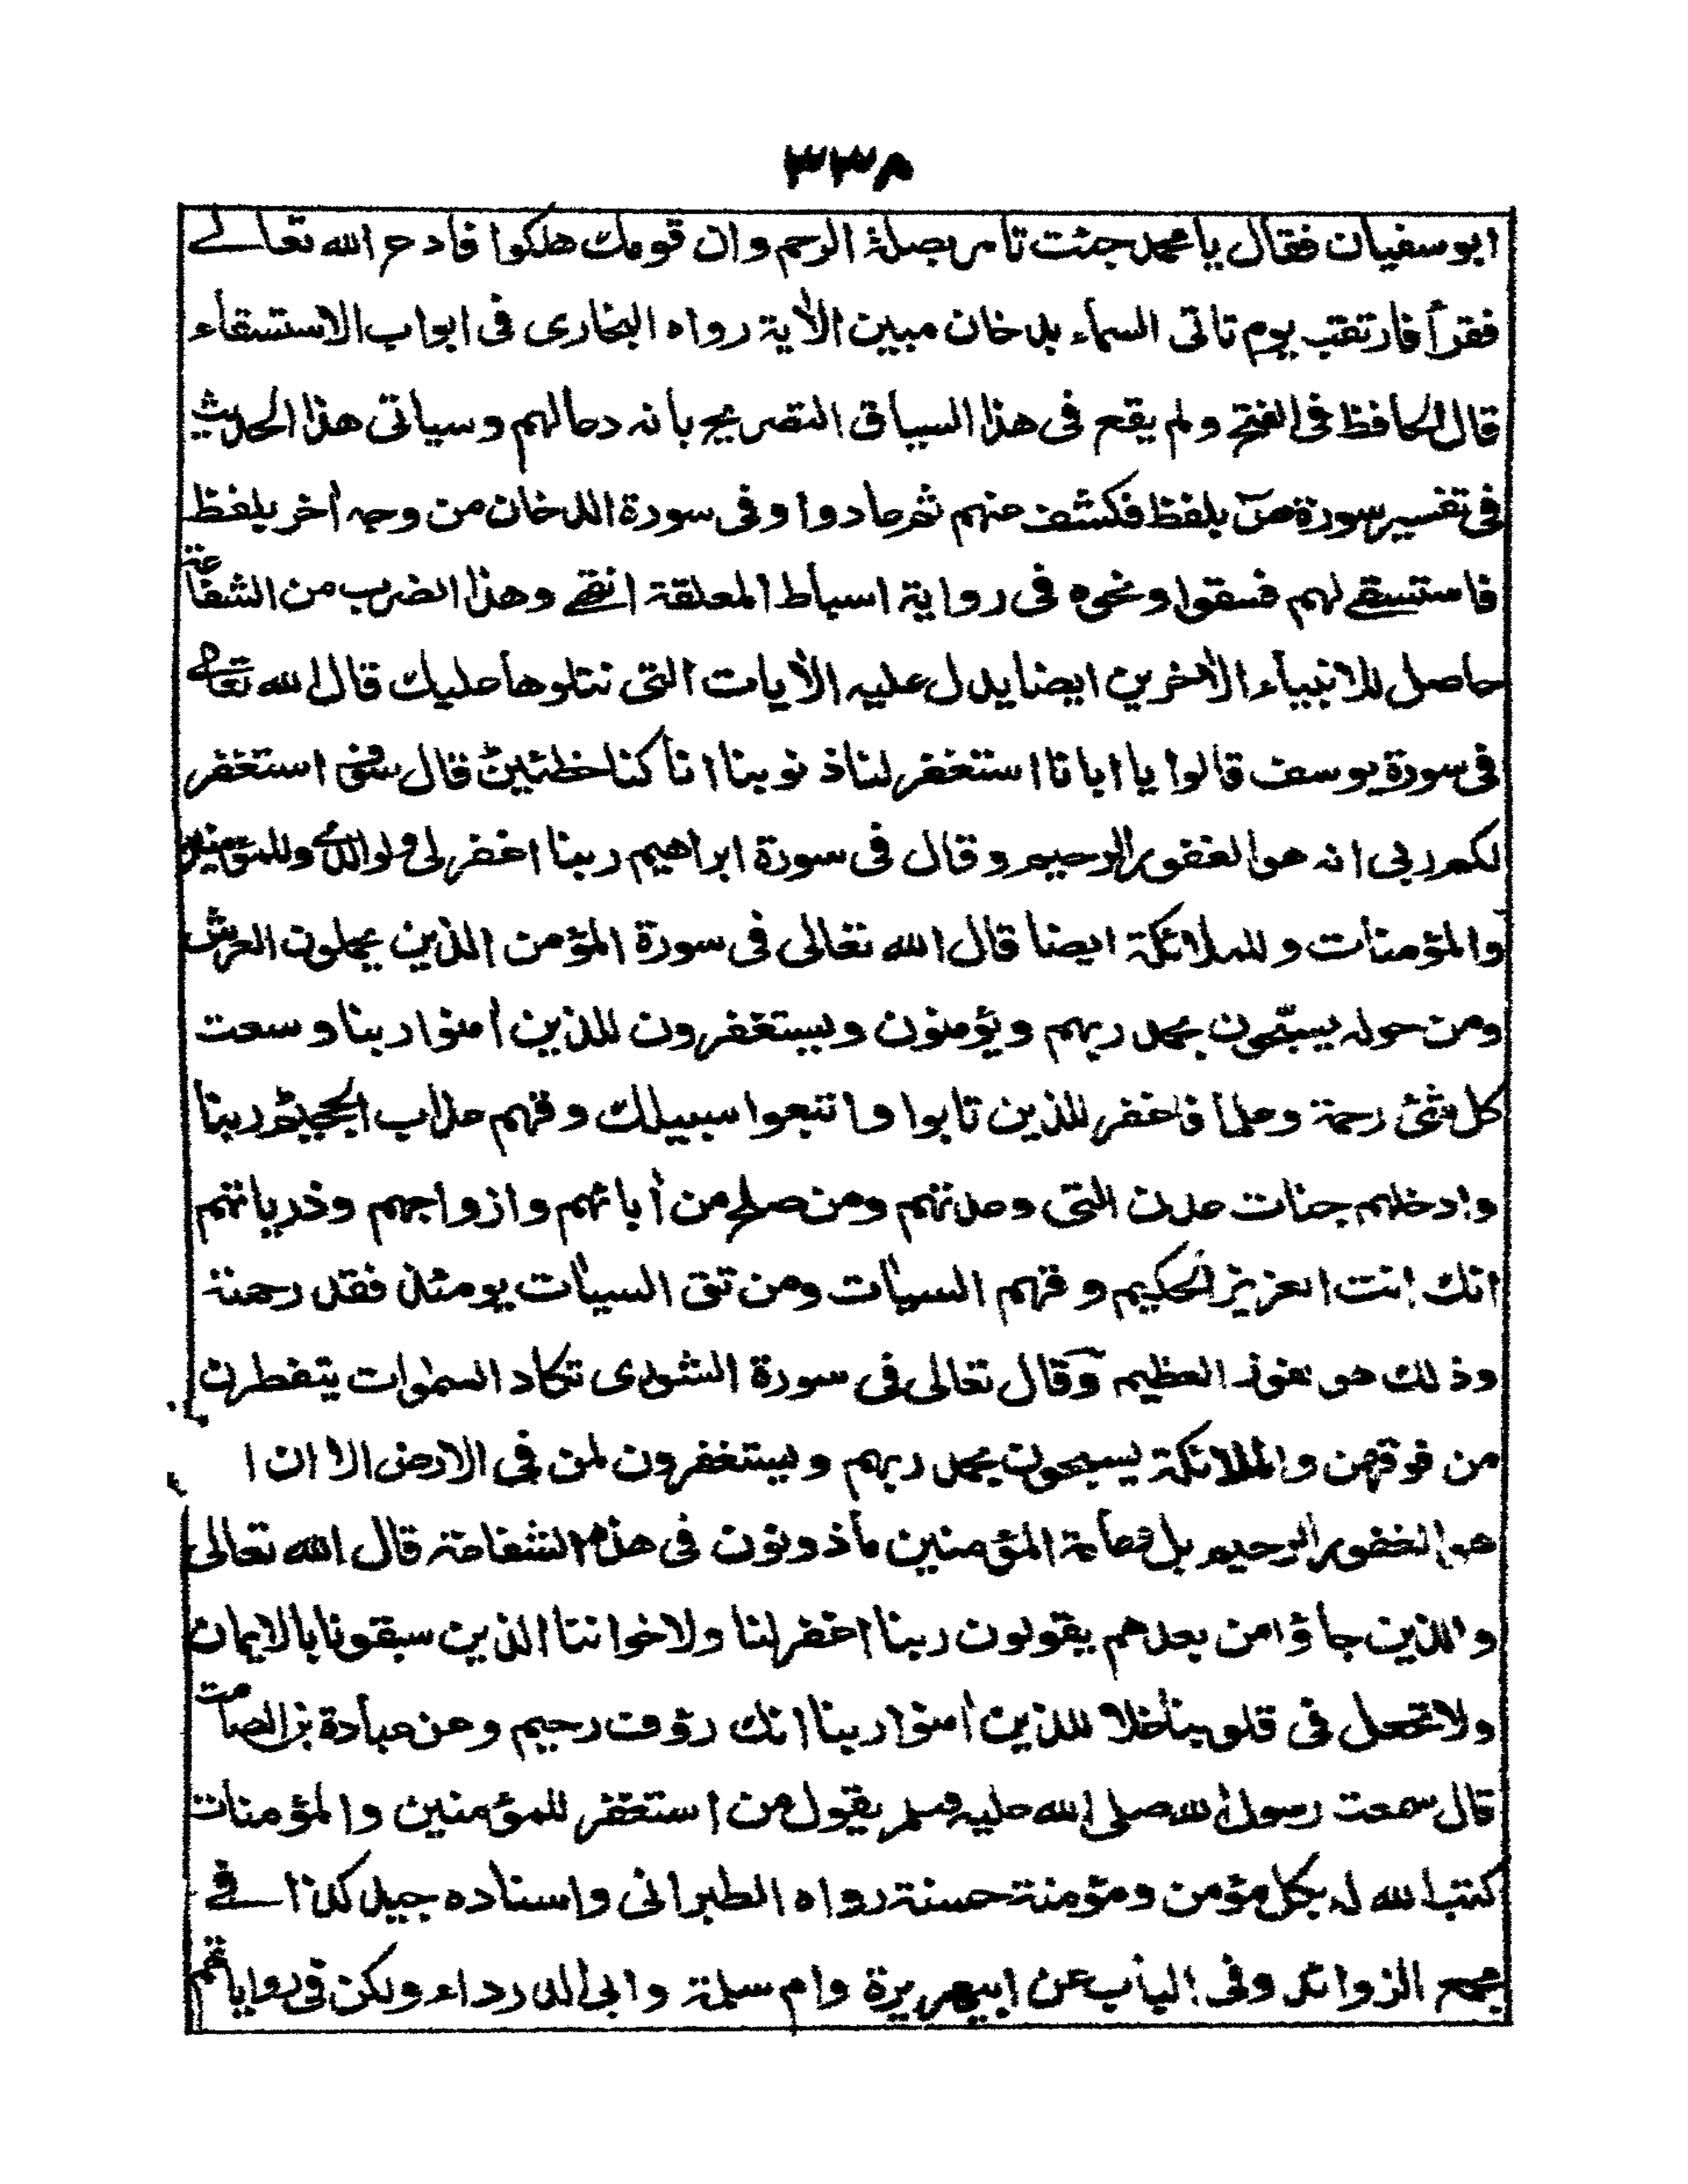 ٣٣٨
ابوسفيان فقال يا محمد جئت تامر بصلة الرحم وان قومك هلكوا فادع الله تعالے
فقرأ فارتقب يوم تاتى السماء بدخان مبين الأية رواه البخارى فى ابواب الاستسقاء
قال الحافظ فى الفتح ولم يقع فى هذا السياق التصريح بانه دعا لهم وسياتى هذا الحديث
فى تفسير سورة صٓ بلفظ فكشف عنهم ثم عادوا وفى سورة الدخان من وجه أخر بلفظ
فاستسقے لهم فسقوا ونحوه فى رواية اسباط المعلقة انتهے وهذا الضرب من الشفاعة
حاصل للانبياء الأخرين ايضا يدل عليه الأيات التى نتلوها عليك قال الله تعالے
فى سورة يوسف قالوا يا ابانا استغفر لنا ذنوبنا انا كنا خطئين قال سوف استغفر
لكم ربى انه هو الغفور الرحيم وقال فى سورة ابراهيم ربنا اغفر لى ولوالدى وللمؤمنين
والمؤمنات وللملائكة ايضا قال الله تعالى فى سورة المؤمن الذين يحملون العرش
ومن حوله يسبحون بحمد ربهم ويؤمنون ويستغفرون للذين أمنوا ربنا وسعت
كل شئ رحمة وعلما فاغفر للذين تابوا واتبعوا سبيلك وقهم عذاب الجحيم ربنا
وادخلهم جنات عدن التى وعدتهم ومن صلح من أبائهم وازواجهم وذرياتهم
انك انت العزيز الحكيم وقهم السيأت ومن تق السيأت يومئذ فقد رحمته
وذلك هو الفوز العظيم وقال تعالى فى سورة الشورى تكاد السموات يتفطرن
من فوقهن والملائكة يسبحون بحمد ربهم ويستغفرون لمن فى الارض الا ان ا
هو الغفور الرحيم بل عامة المؤمنين مأذونون فى هذه الشفاعة قال الله تعالى
والذين جاؤا من بعدهم يقولون ربنا اغفر لنا ولاخواننا الذين سبقونا بالايمان
ولا تجعل فى قلوبنا غلا للذين أمنوا ربنا انك رؤف رحيم وعن عبادة بن الصامت
قال سمعت رسول الله صلى الله عليه وسلم يقول من استغفر للمؤمنين والمؤمنات
كتب الله له بكل مؤمن ومؤمنة حسنة رواه الطبرانى واسناده جيد كذا فے
مجمع الزوائد وفى الباب عن ابيهريرة وام سلمة وابى الدرداء ولكن فى رواياتهم